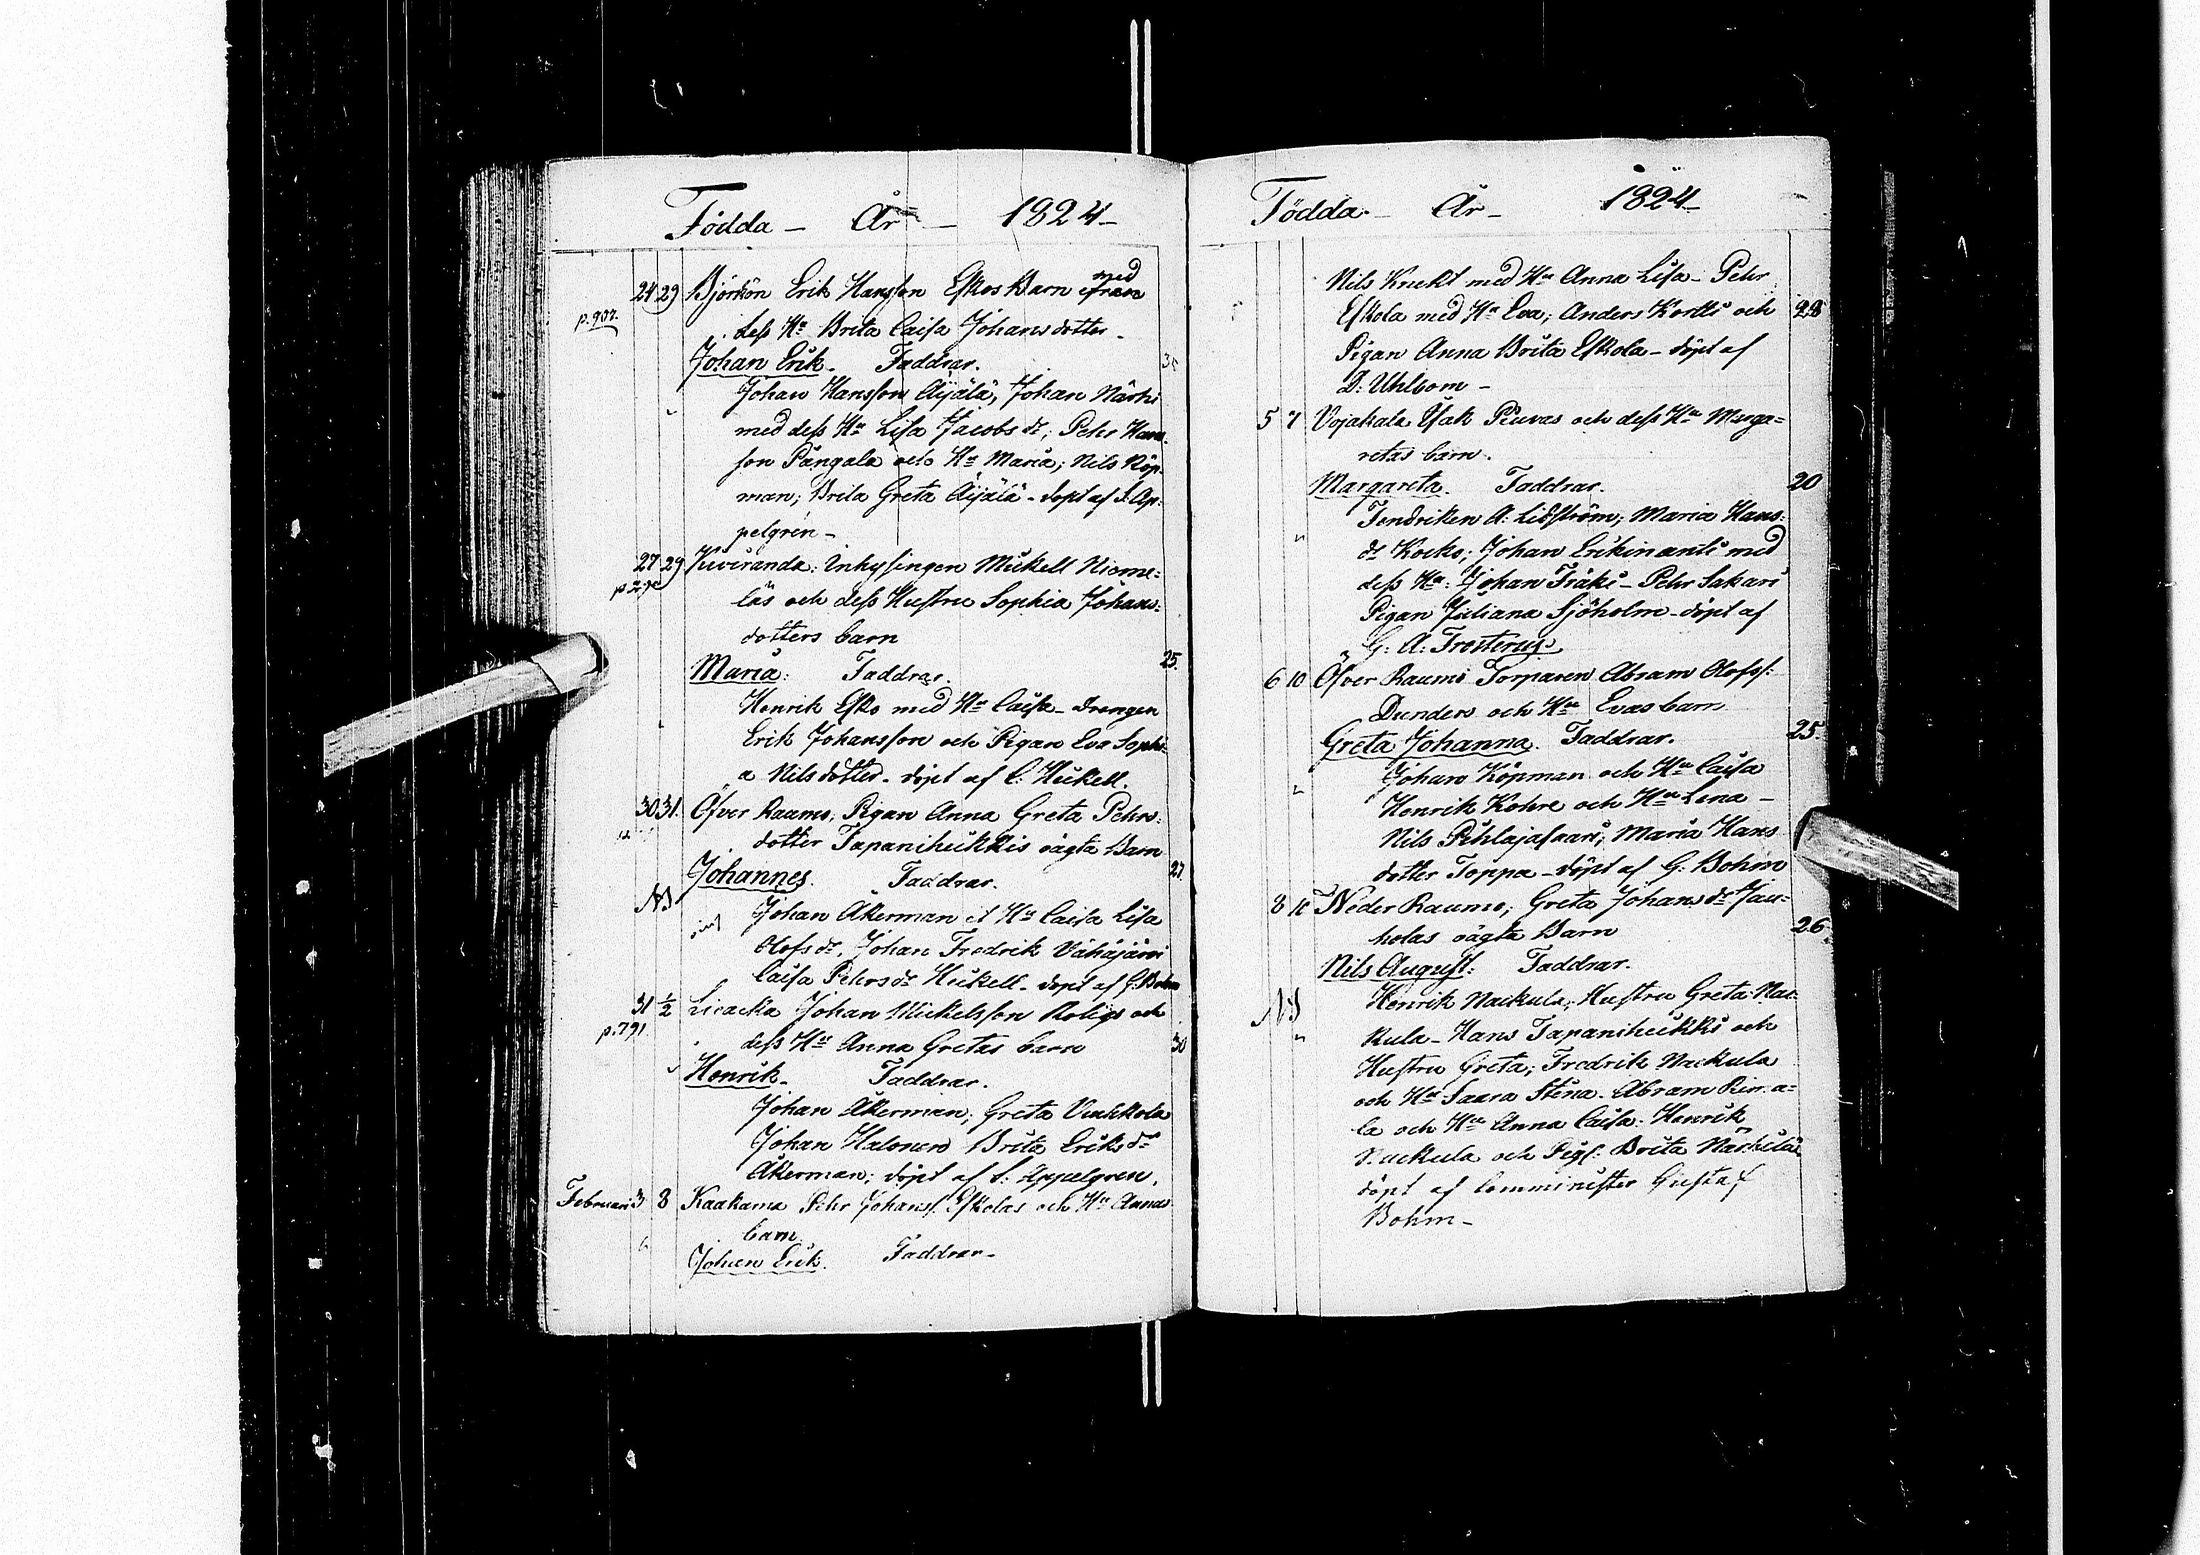 Födda – År – 1824 –
24 29 Björkön Erik Hansson Eskos Barn med
p. 907.
dess Hu Brita Caisa Johansdotter –
Johan Erik. Faddrar.
Johan Hansson Äijälä, Johan Närhi
med dess Hu Lisa Jacobs dr, Pehr Hans-
son Pångala och Hu Maria; Nils Köp-
man; Brita Greta Äijälä – döpt af Ap-
pelgrén –
27 29 Kuviranda: Inhysingen Mickell Nieme-
läs och dess Hustru Sophia Johans-
dotters barn
Maria: Faddrar. 25.
Henrik Esko med Hu Caisa – drengen
Erik Johansson och Pigan Eva Sophi-
a Nilsdotter – döpt af C. Heikell.
30 31. Öfver Raumo, Pigan Anna Greta Pehrs-
dotter Tapaniheikkis oägta Barn
Johannes. Faddrar. 27.
NB
Johan Åkerman et Hu Caisa Lisa
Olofs dr, Johan Fredrik Vähäjärvi
Caisa Pehrs dr Heikell – döpt af G. Bohm
31 1/2 Liacka Johan Mickelsson Roligs och
p. 791.
dess Hu Anna Gretas barn 30
Henrik – Faddrar.
Johan Åkerman; Greta Vuokkola
Johan Halonen Brita Eriks dr
Åkerman; döpt af Appelgren.
Februari 3 8 Kaakama Pehr Johanss. Eskolas och Hu Annas
barn.
Johan Erik. Faddrar –
Födda – År – 1824 –
Nils Knekt med Hu Anna Lisa – Pehr
Eskola med Hu Eva; Anders Kortti och 28
Pigan Anna Brita Eskola – döpt af
D: Uhlbom –
5 7 Vojakala Isak Peuras och dess Hu Marga-
retas barn.
Margareta. Faddrar. 20
Fendriken A: Lidström; Maria Hans-
dr Kocko; Johan Erkinantti med
dess Hu: Johan Träki – Pehr Sakari
Pigan Juliana Sjöholm – döpt af
G: A: Frosterus.
6 10 Öfver Raumo Torparen Abram Olofss:
Dunders och Hu Evas barn
Greta Johanna. Faddrar. 25.
Johan Köpman och Hu Caisa
Henrik Kohre och Hu Lena –
Nils Pihlajasaari; Maria Hans
dotter Toppa – döpt af G: Bohm
8 10 Neder Raumo; Greta Johans dr Jau-
holas oägta Barn 26.
Nils August: Faddrar.
NB
Henrik Nackula; Hustru Greta Nac-
kula – Hans Tapaniheikki och
Hustru Greta; Fredrik Nackula
och Hu Saara Stina. Abram
la och Hu Anna Caisa. Henrik
Nackula och Pig: Brita
döpt af Comminister Gustaf
Bohm –